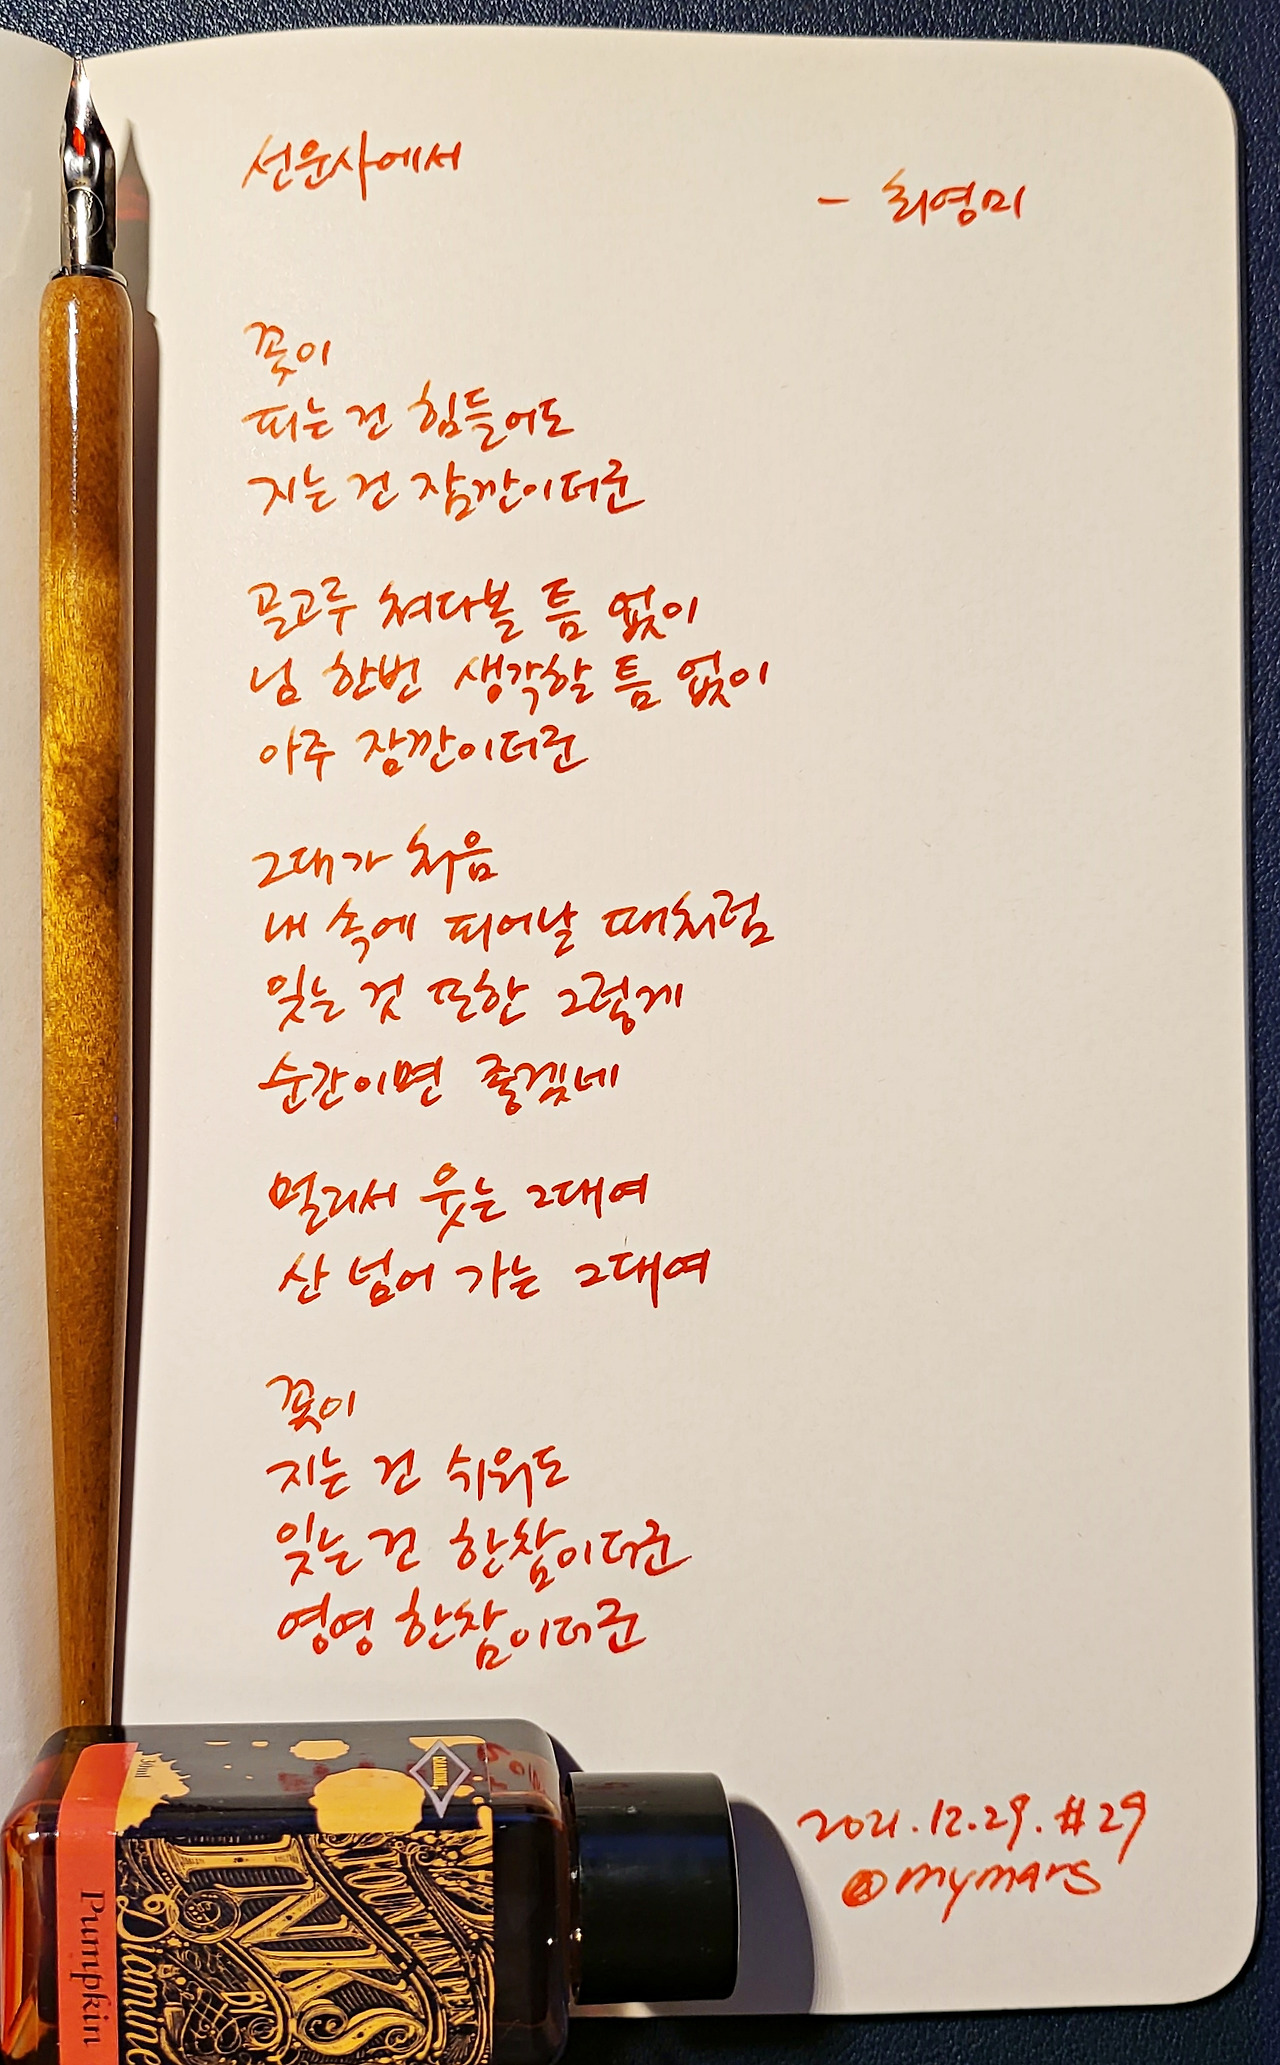 선운사에서
- 최영미
꽃이
피는 건 힘들어도
지는 건 잠깐이더군
골고루 쳐다볼 틈 없이
님 한번 생각할 틈 없이
아주 잠깐이더군
그대가 처음
내 속에 피어날 때처럼
잊는 것 또한 그렇게
순간이면 좋겠네
멀리서 웃는 그대여
산 넘어 가는 그대여
꽃이
지는 건 쉬워도
잊는 건 한참이더군
영영 한참이더군
2021.12.29. #29
@mymars
30ml
DIAMINE
FOUNTAIN PEN
INKS
BY
Diamine
Pumpkin